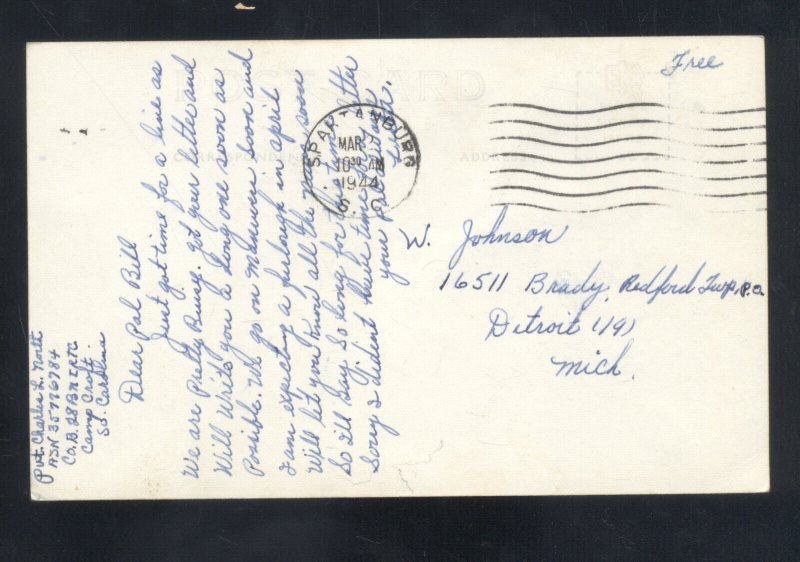 Free
POST CARD
CORRESPONDENCE
ADDRESS
SPARTANBURG
MAR 7
10 30 AM
1944
S. C.
Pvt. Charles L. North
ASN 35776784
Co. B. 28 Bn
Camp Croft
So. Carolina
Dear Pal Bill
Just got time for a line as
We are Pretty Busy. Got your letter and
Will Write you a long one soon as
Possible. We go on Maneuvers soon and
I am expecting a furlough in april
Will let you know all the soon
So I'll Say So long for this time
Sorry I didn't have time
your Pal
W. Johnson
16511 Brady, Redford Twp. P.O.
Detroit (19)
Mich.